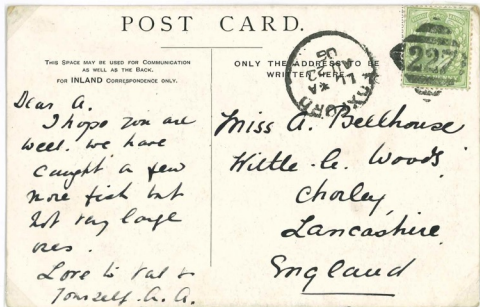 POST CARD.
THIS SPACE MAY BE USED FOR COMMUNICATION
AS WELL AS THE BACK.
FOR INLAND CORRESPONDENCE ONLY.
ONLY THE ADDRESS TO BE
WRITTEN HERE.
227
Dear A.
I hope you are
well. We have
caught a few
more fish but
not very large
ones.
Love to Val &
Yourself. A. A.
Miss A. Bellhouse
Whittle-le-Woods
Chorley
Lancashire
England